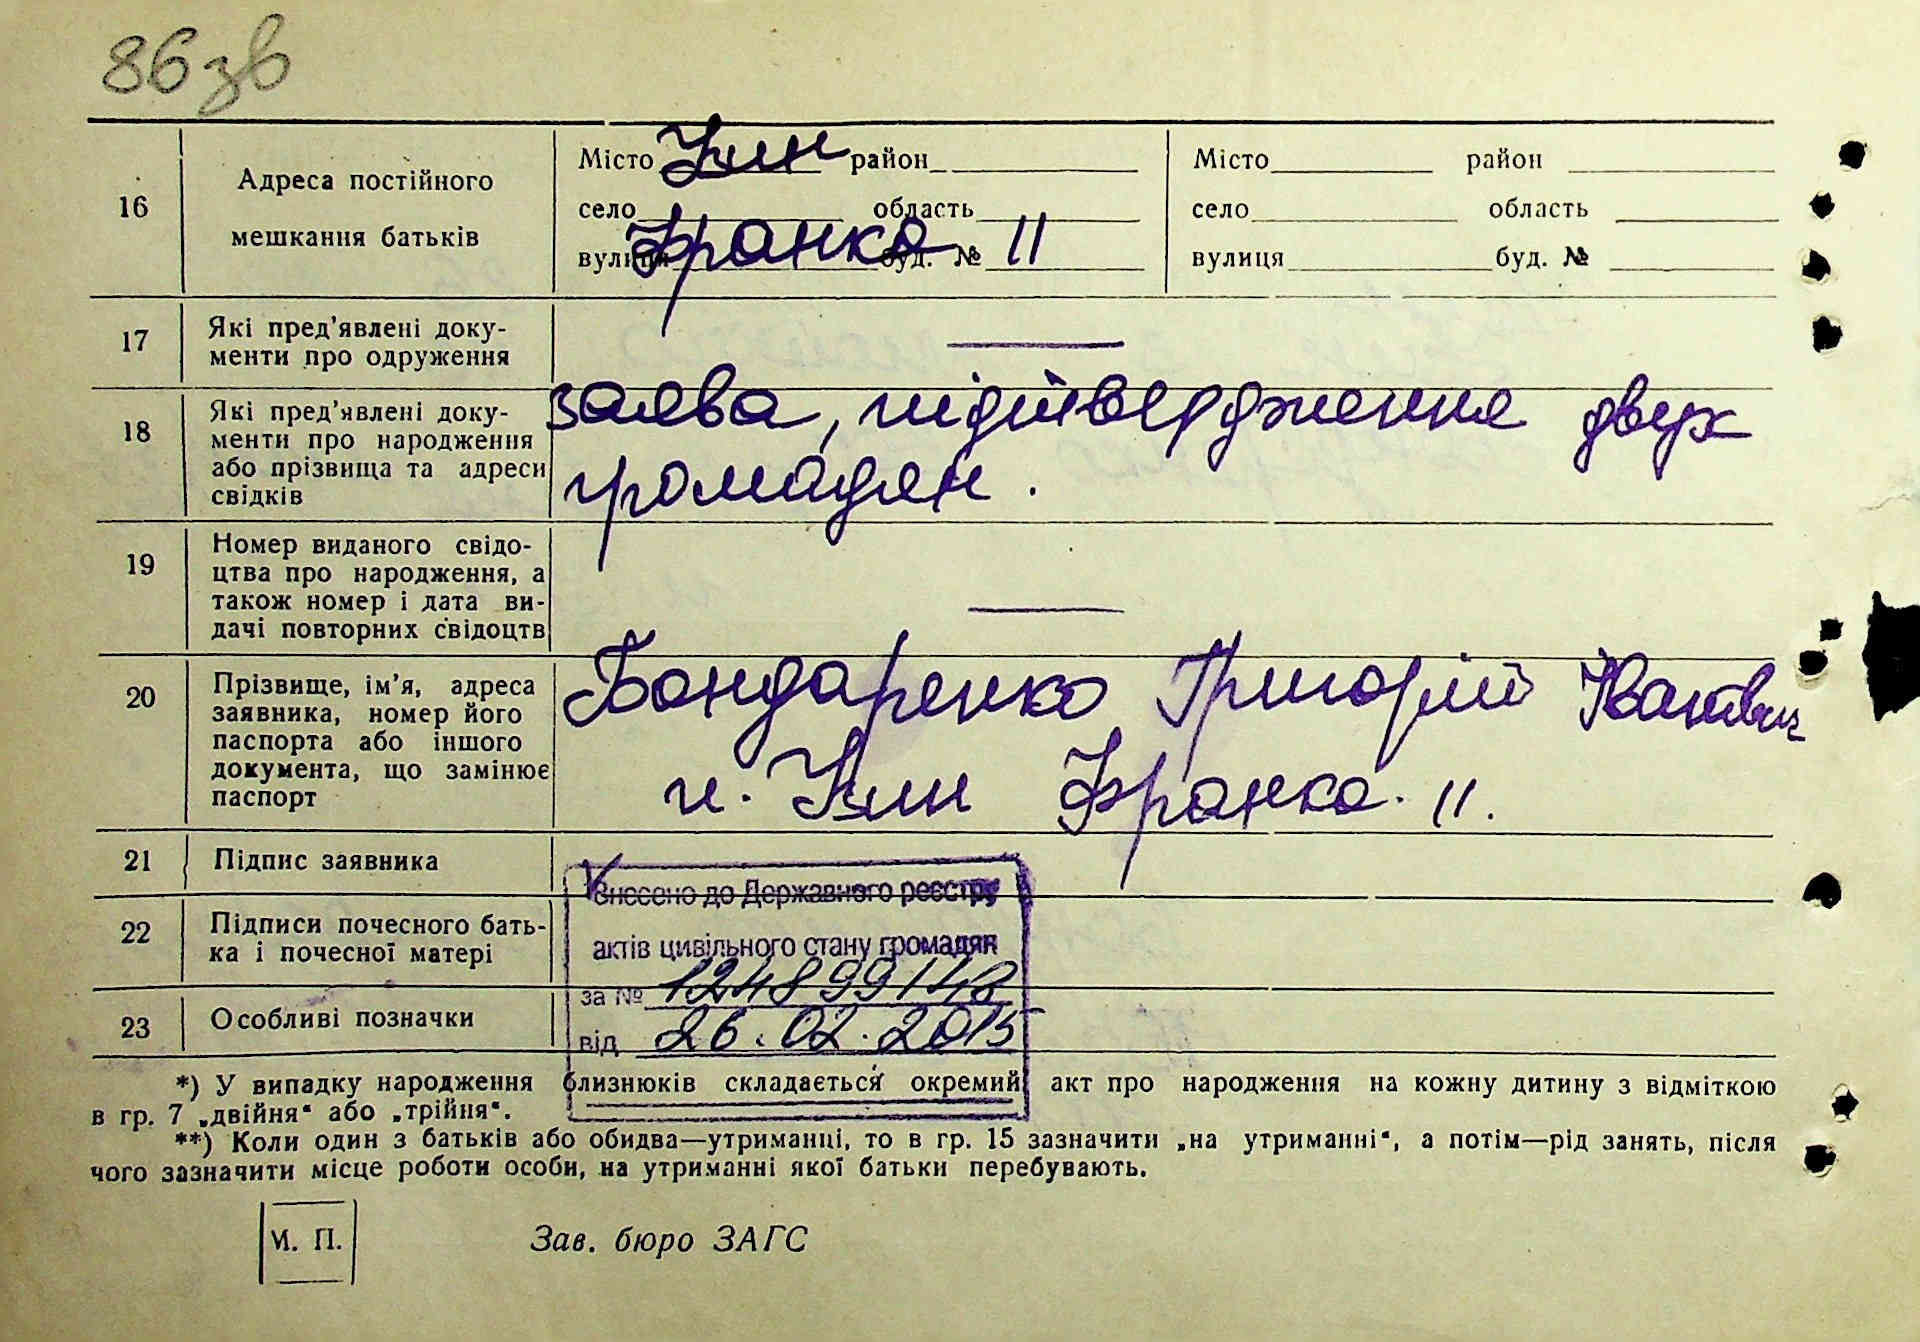 86 зв
16 Адреса постійного мешкання батьків
Місто Узин район
село область
вулиця Франко буд. № 11
Місто район
село область
вулиця буд. №
17 Які пред'явлені доку-
менти про одруження —
18 Які пред'явлені доку-
менти про народження
або прізвища та адреси
свідків
заява, підтвердження двух
громадян.
19 Номер виданого свідо-
цтва про народження, а
також номер і дата ви-
дачі повторних свідоцтв —
20 Прізвище, ім'я, адреса
заявника, номер його
паспорта або іншого
документа, що замінює
паспорт
Бондаренко Григорій Іванович
м. Узин Франко. 11.
21 Підпис заявника
22 Підписи почесного бать-
ка і почесної матері
23 Особливі позначки
Внесено до Державного реєстру
актів цивільного стану громадян
за № 12489914
від 26.02.2015
*) У випадку народження близнюків складається окремий акт про народження на кожну дитину з відміткою
в гр. 7 „двійня“ або „трійня“.
**) Коли один з батьків або обидва—утриманці, то в гр. 15 зазначити „на утриманні“, а потім—рід занять, після
чого зазначити місце роботи особи, на утриманні якої батьки перебувають.
М. П. Зав. бюро ЗАГС